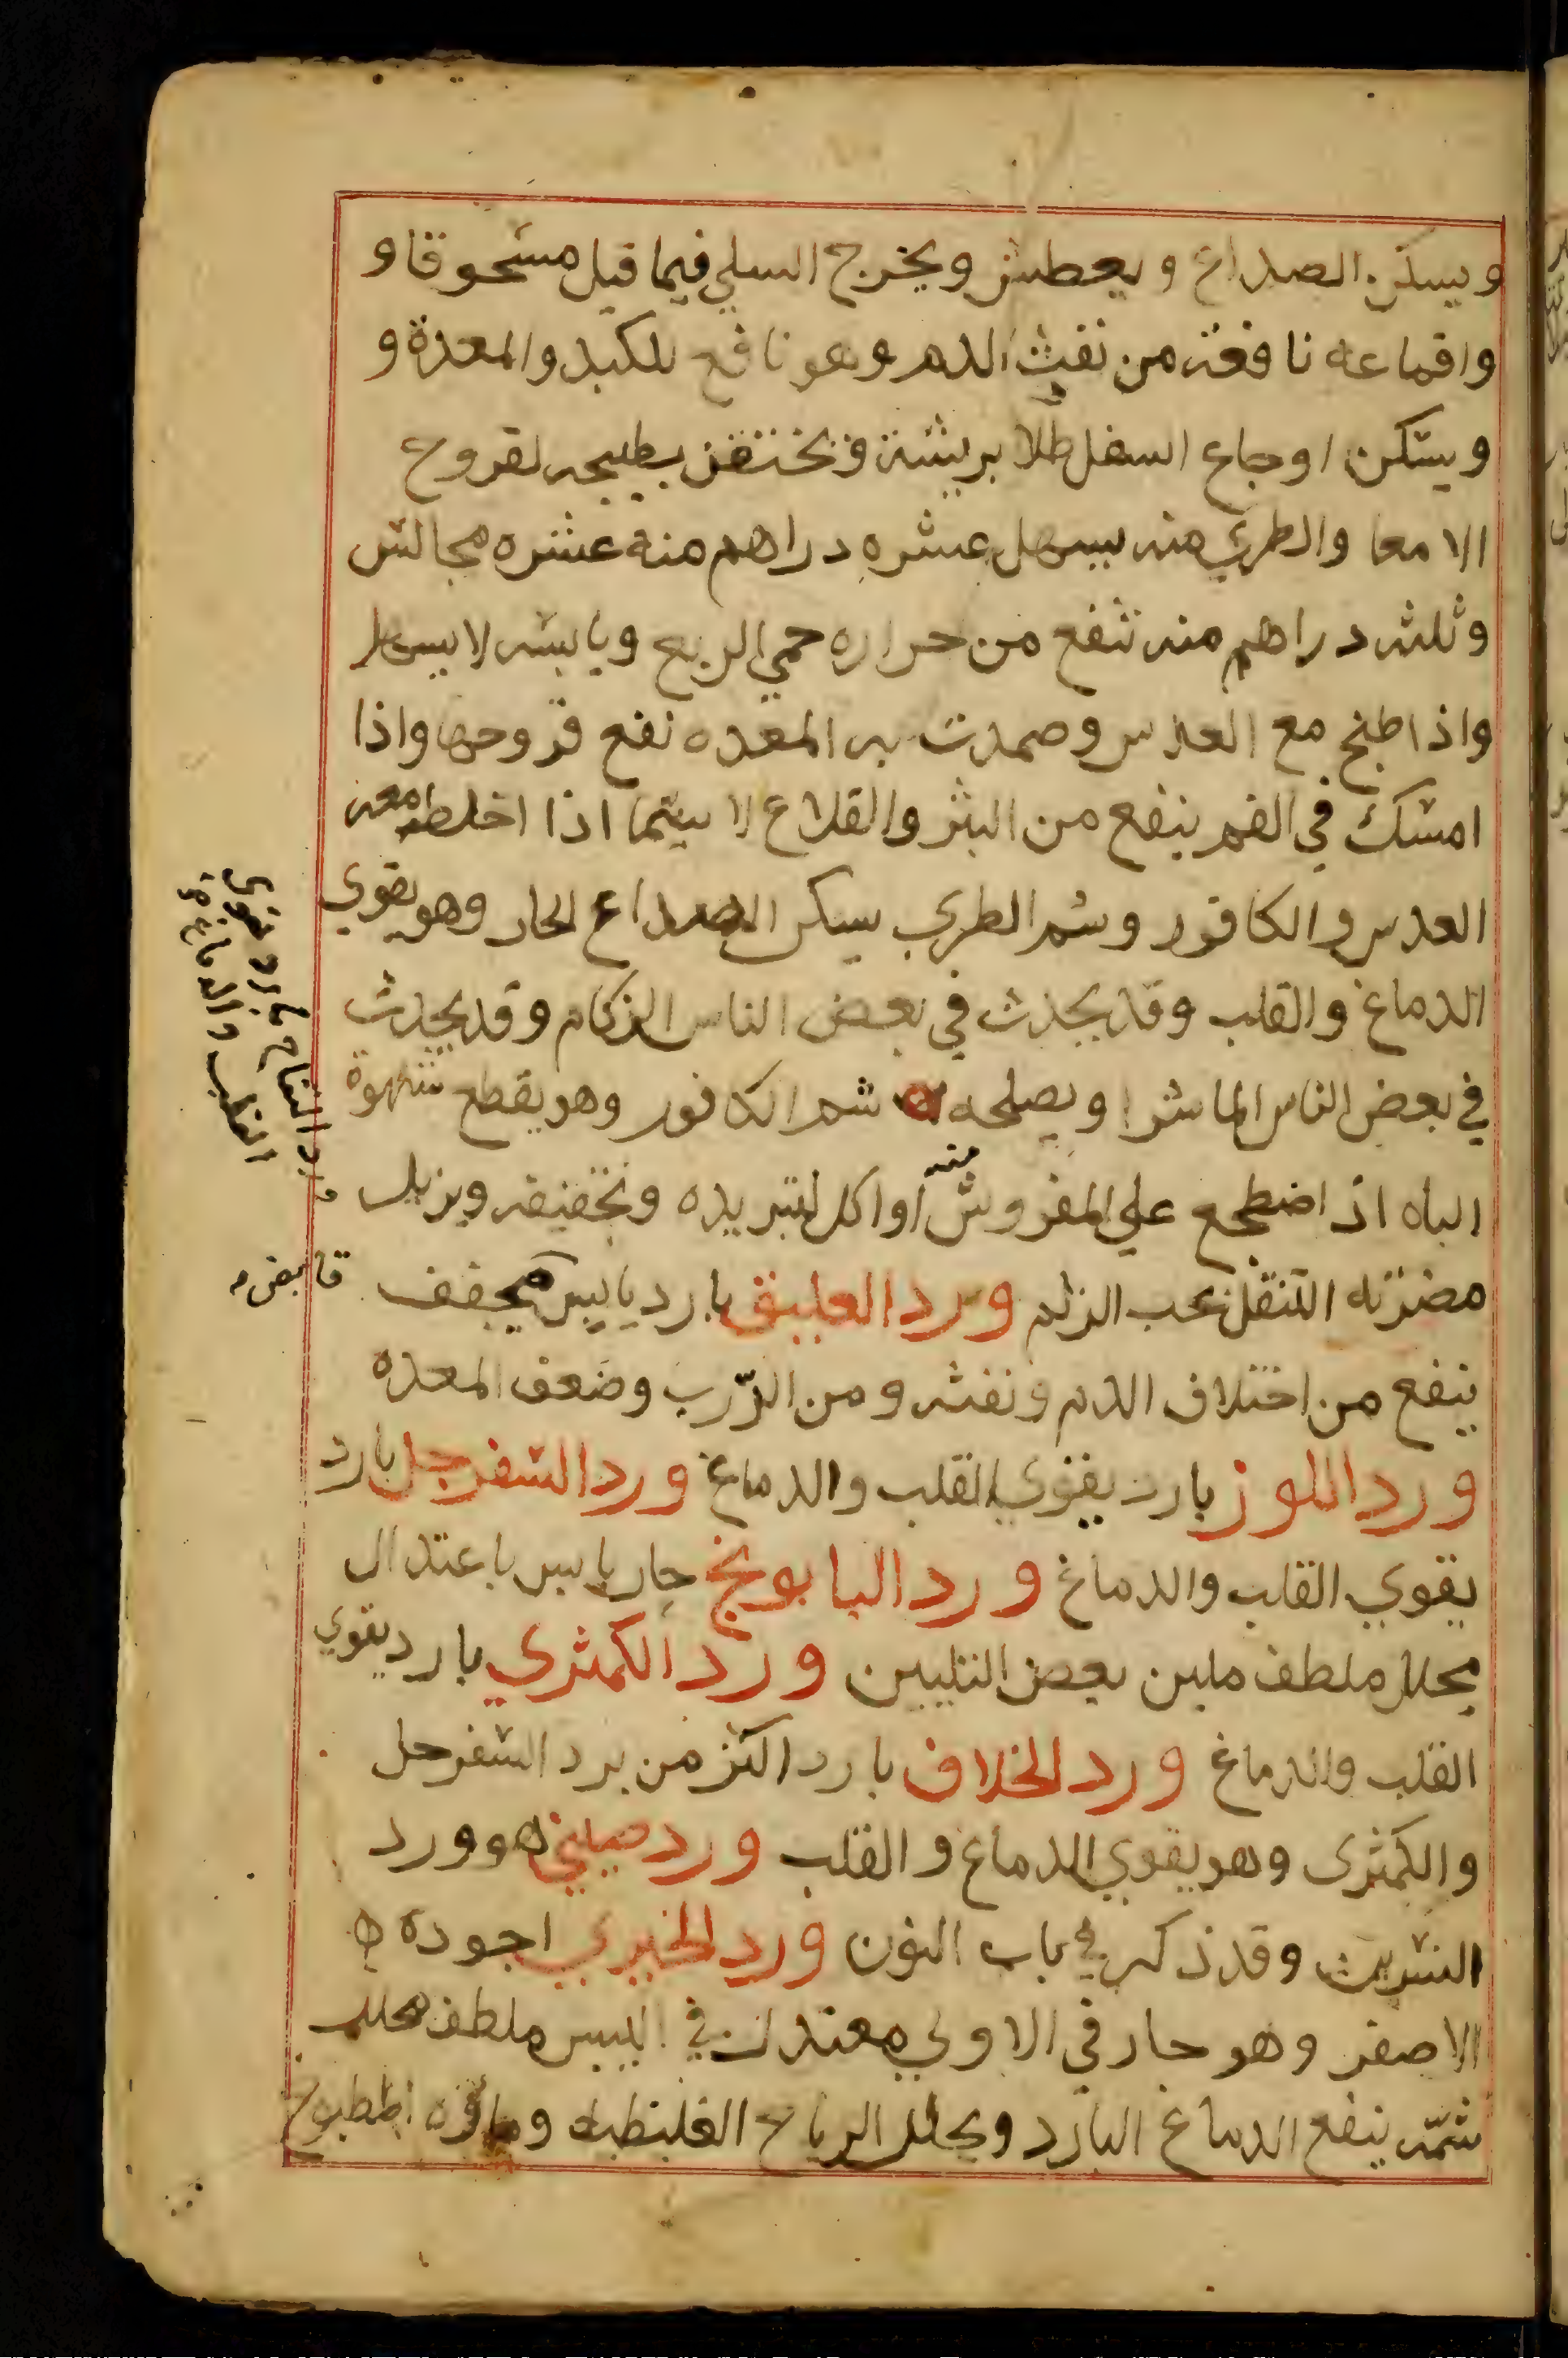 ويسكن الصداع ويعطش ويخرج السلي فيما قيل مسحوقا و
واقماعه نافعة من نفث الدم وهو نافع للكبد والمعدة و
ويسكن اوجاع السفل طلا بريشة وتحتقن بطبيخه لقروح
الامعا والطري منه يسهل عشره دراهم منه عشره مجالس
وثلثه دراهم منه تنفع من حراره حمي الربع ويابسه لا يسهل
واذا طبخ مع العدس وضمدت به المعده نفع قروحها واذا
امسك في الفم ينفع من البثر والقلاع لا سيما اذا اخلط معه
العدس والكافور وشم الطري يسكن الصداع الحار وهو يقوي
الدماغ والقلب وقد يحدث في بعض الناس الزكام وقد يحدث
في بعض الناس الماشرا ويصلحه شم الكافور وهو يقطع شهوة
الباه اذ اضطجع علي المفروش منه او اكل لتبريده وتجفيفه ويزيل
مضرته التنقل بحب الزلم ورد العليق بارد يابس مجفف قابض
ينفع من اختلاف الدم ونفثه ومن الذّرب وضعف المعده
ورد اللوز بارد يقوي القلب والدماغ ورد السفرجل بارد
يقوي القلب والدماغ ورد البابونج حار يابس باعتدال
محلل ملطف ملين بعض التليين ورد الكمثري بارد يقوي
القلب والدماغ ورد الخلاف بارد اكثر من برد السفرجل
والكمثرى وهو يقوي الدماغ والقلب ورد صيني هو ورد
النسرين وقد ذكر في باب النون ورد الخيري اجوده
الاصفر وهو حار في الاولي معتدل في اليبس ملطف محلل
شمّه ينفع الدماغ البارد ويحلل الرياح الغليظه وماؤه المطبوخ
ورد التفاح بارد يقوى
القلب والدماغ